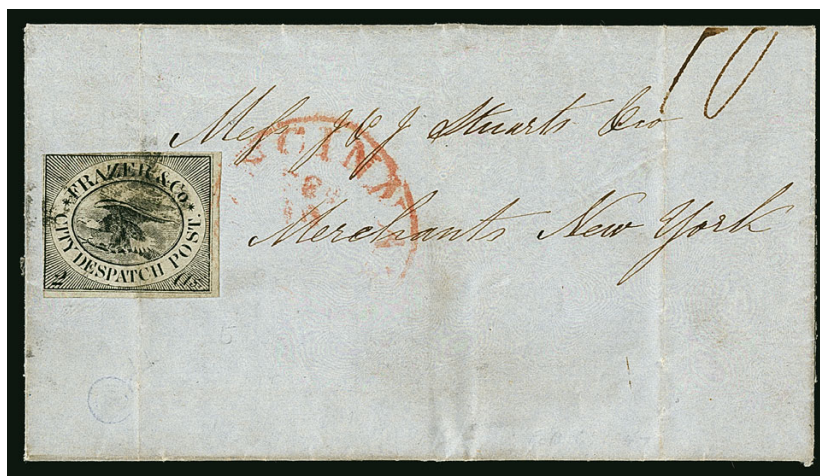 10
Mess J & J Stuarts & Co
Merchants New York
FRAZER & Co.
CITY DESPATCH POST.
2 Cts
CINN